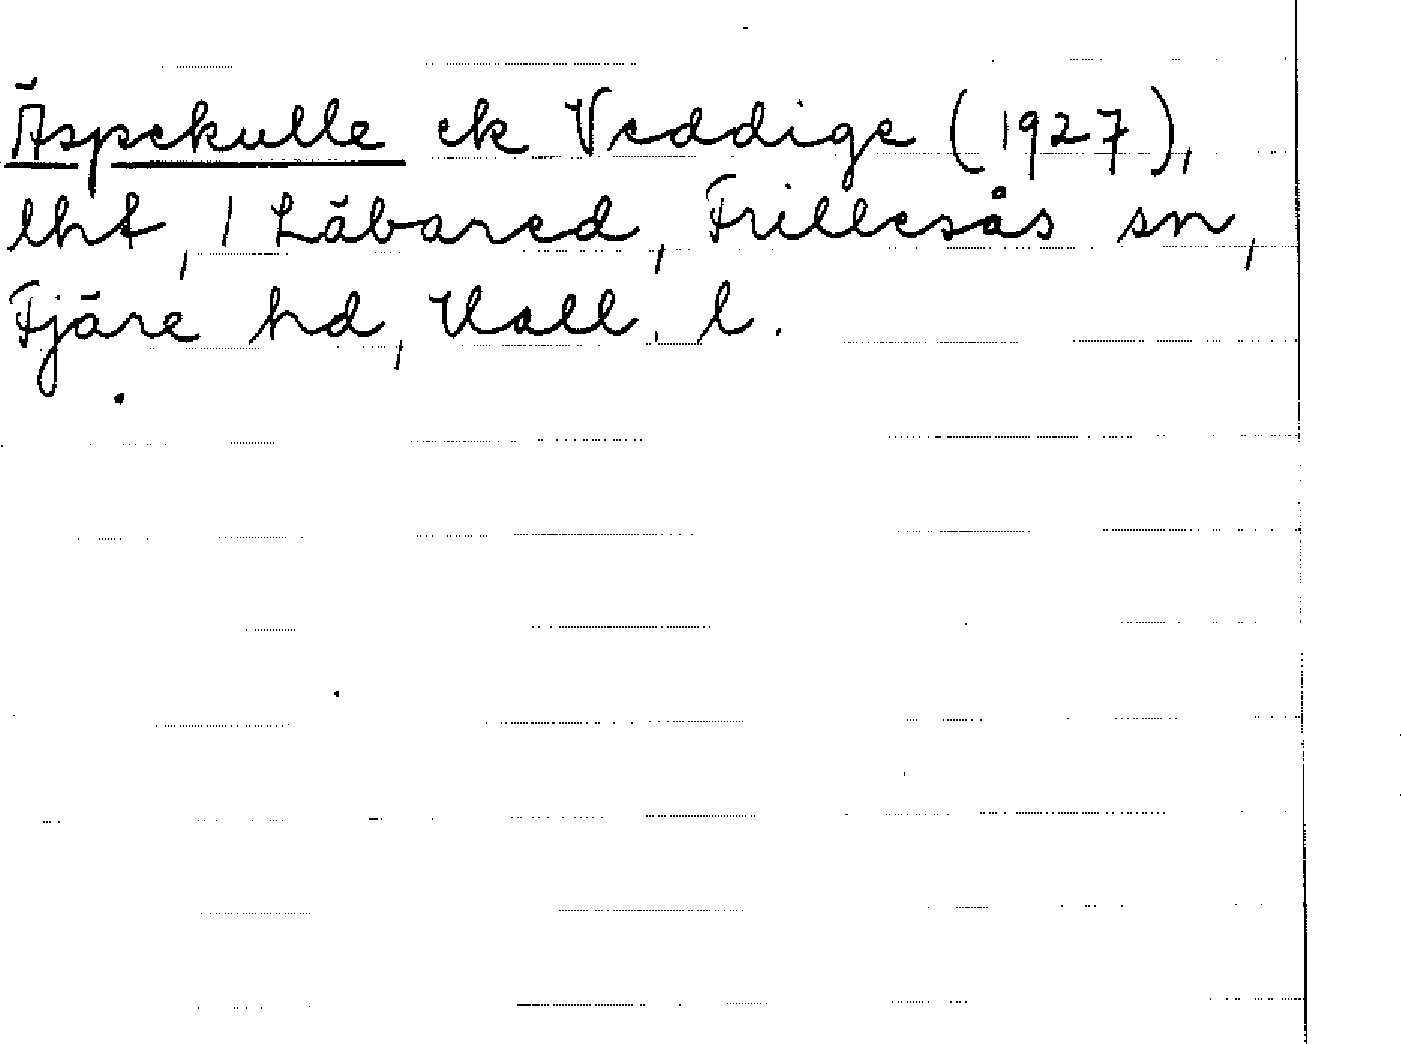 Äspekulle ek Veddige (1927),
lht, 1 Läbared, Frillesås sn,
Fjäre hd, Hall. l.